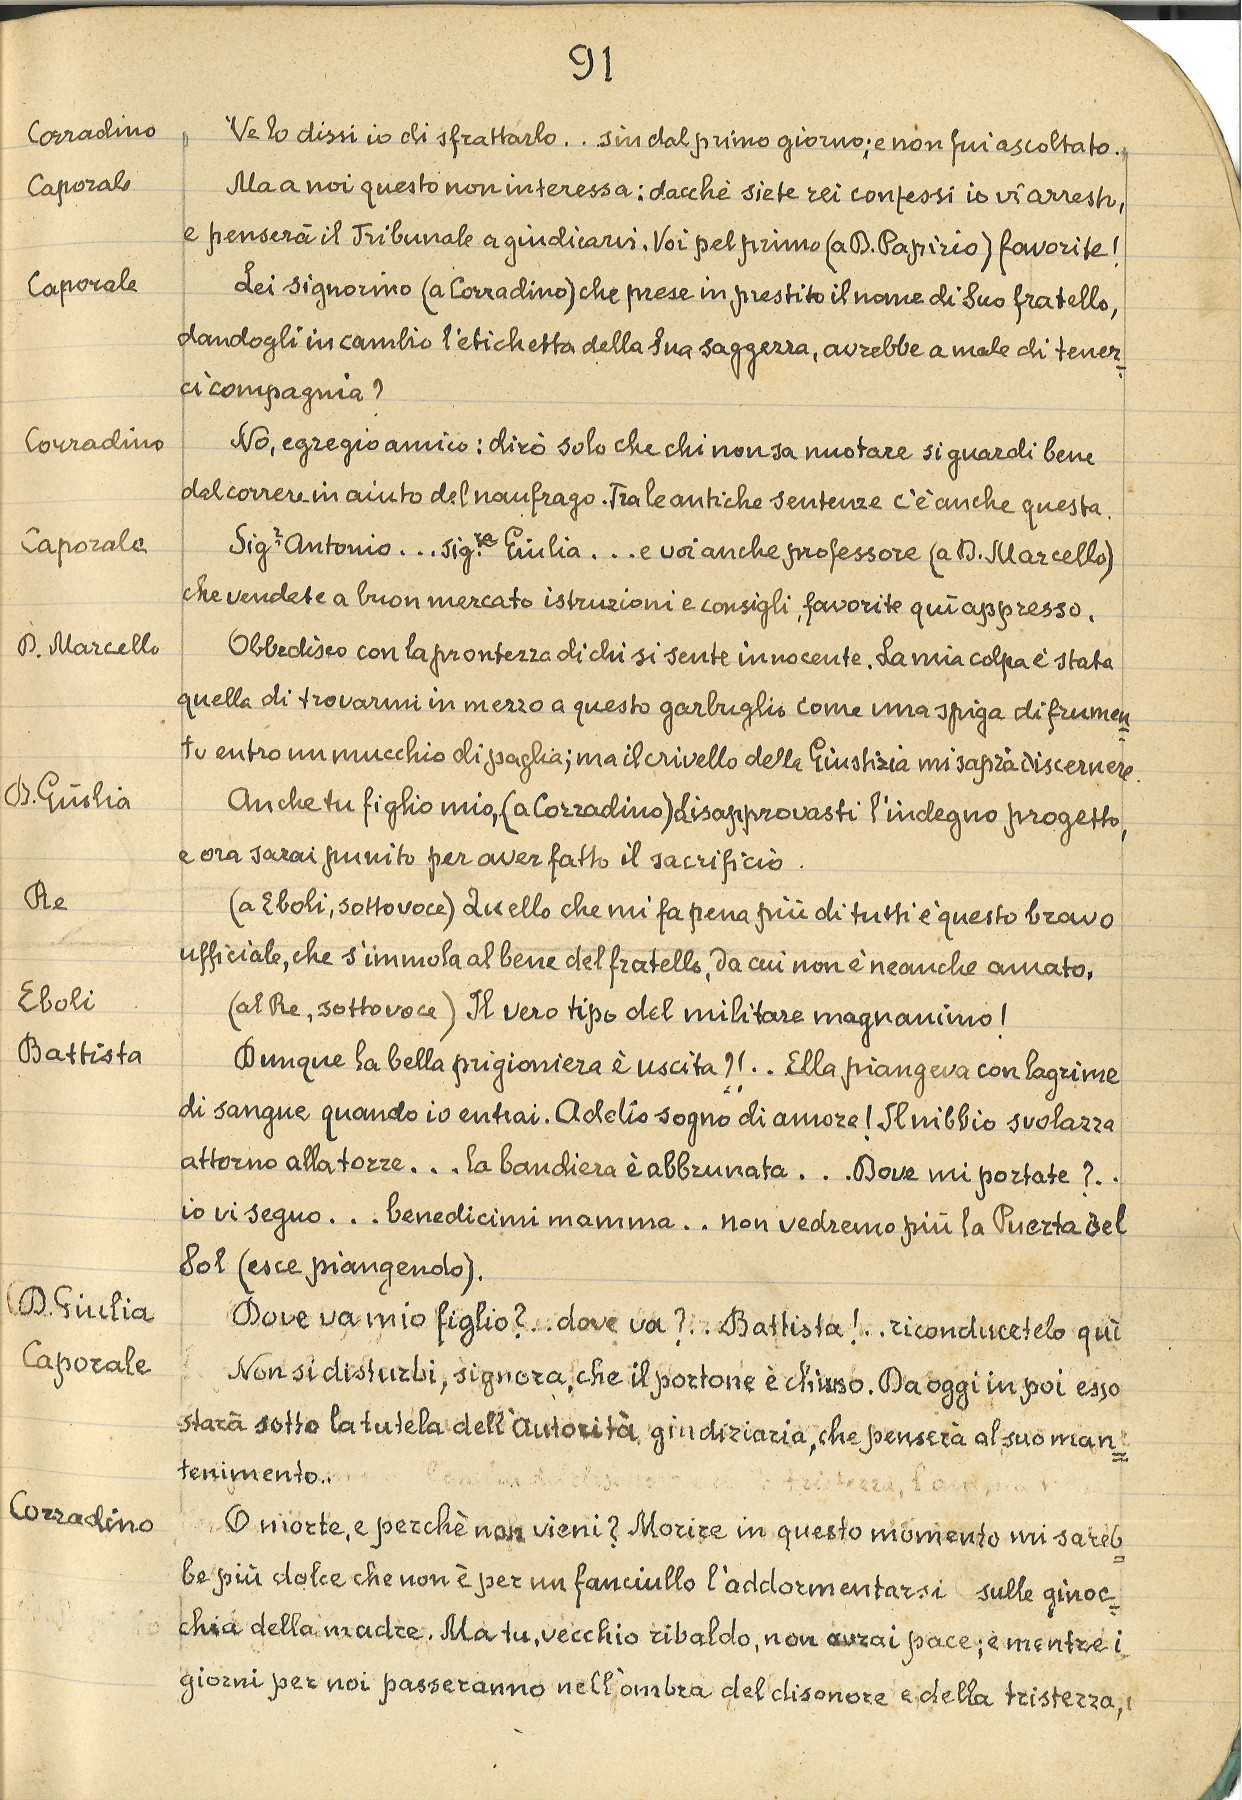 91
Corradino Ve lo dissi io di sfrattarlo.. sin dal primo giorno; e non fui ascoltato..
Caporale Ma a noi questo non interessa: dacchè siete rei confessi io vi arresto,
e penserà il Tribunale a giudicarvi. Voi pel primo (a D. Papirio) favorite!
Caporale Lei signorino (a Corradino) che prese in prestito il nome di Suo fratello,
dandogli in cambio l'etichetta della Sua saggezza, avrebbe a male di tener=
ci compagnia?
Corradino No, egregio amico: dirò solo che chi non sa nuotare si guardi bene
dal correre in aiuto del naufrago. Tra le antiche sentenze c'è anche questa.
Caporale Sigr. Antonio... sig.re Giulia... e voi anche professore (a D. Marcello)
che vendete a buon mercato istruzioni e consigli, favorite quì appresso.
D. Marcello Obbedisco con la prontezza di chi si sente innocente. La mia colpa è stata
quella di trovarmi in mezzo a questo garbuglio come una spiga di frumen=
to entro un mucchio di paglia; ma il crivello della Giustizia mi saprà discernere.
D. Giulia Anche tu figlio mio, (a Corradino) disapprovasti l'indegno progetto,
e ora sarai punito per aver fatto il sacrificio.
Re (a Eboli, sottovoce) Quello che mi fa pena più di tutti è questo bravo
ufficiale, che s'immola al bene del fratello, da cui non è neanche amato.
Eboli (al Re, sottovoce) Il vero tipo del militare magnanimo!
Battista Dunque la bella prigioniera è uscita?!.. Ella piangeva con lagrime
di sangue quando io entrai. Addio sogno di amore! Il nibbio svolazza
attorno alla torre... la bandiera è abbrunata... Dove mi portate?..
io vi seguo... benedicimi mamma.. non vedremo più la Puerta del
Sol (esce piangendo).
D. Giulia Dove va mio figlio?.. dove va?.. Battista!.. riconducetelo quì
Caporale Non si disturbi, signora, che il portone è chiuso. Da oggi in poi esso
starà sotto la tutela dell'Autorità giudiziaria, che penserà al suo man=
tenimento..
Corradino O morte, e perchè non vieni? Morire in questo momento mi sareb=
be più dolce che non è per un fanciullo l'addormentarsi sulle ginoc=
chia della madre. Ma tu, vecchio ribaldo, non avrai pace; e mentre i
giorni per noi passeranno nell'ombra del disonore e della tristezza,